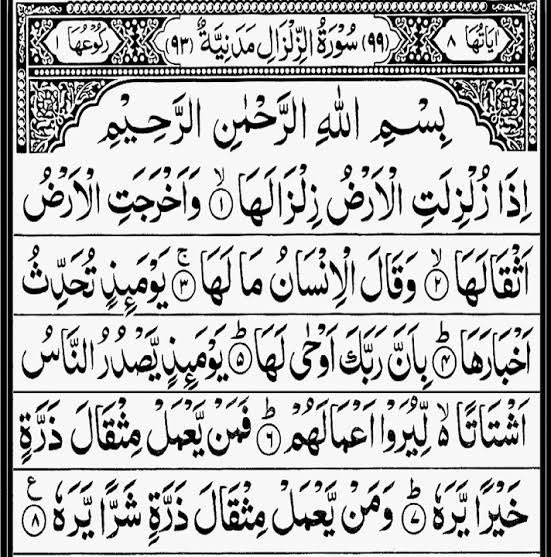 اٰيَاتُهَا ٨ (٩٩) سُوْرَةُ الزِّلْزَالِ مَدَنِيَّةٌ (٩٣) رُكُوْعُهَا ١
بِسْمِ اللّٰهِ الرَّحْمٰنِ الرَّحِيْمِ
اِذَا زُلْزِلَتِ الْاَرْضُ زِلْزَالَهَا ۙ﴿١﴾ وَاَخْرَجَتِ الْاَرْضُ
اَثْقَالَهَا ۙ﴿٢﴾ وَقَالَ الْاِنْسَانُ مَا لَهَا ۚ﴿٣﴾ يَوْمَئِذٍ تُحَدِّثُ
اَخْبَارَهَا ؕ﴿٤﴾ بِاَنَّ رَبَّكَ اَوْحٰى لَهَا ؕ﴿٥﴾ يَوْمَئِذٍ يَّصْدُرُ النَّاسُ
اَشْتَاتًا ۙ۬ لِّيُرَوْا اَعْمَالَهُمْ ؕ﴿٦﴾ فَمَنْ يَّعْمَلْ مِثْقَالَ ذَرَّةٍ
خَيْرًا يَّرَهٗ ؕ﴿٧﴾ وَمَنْ يَّعْمَلْ مِثْقَالَ ذَرَّةٍ شَرًّا يَّرَهٗ ﴿٨﴾ ع